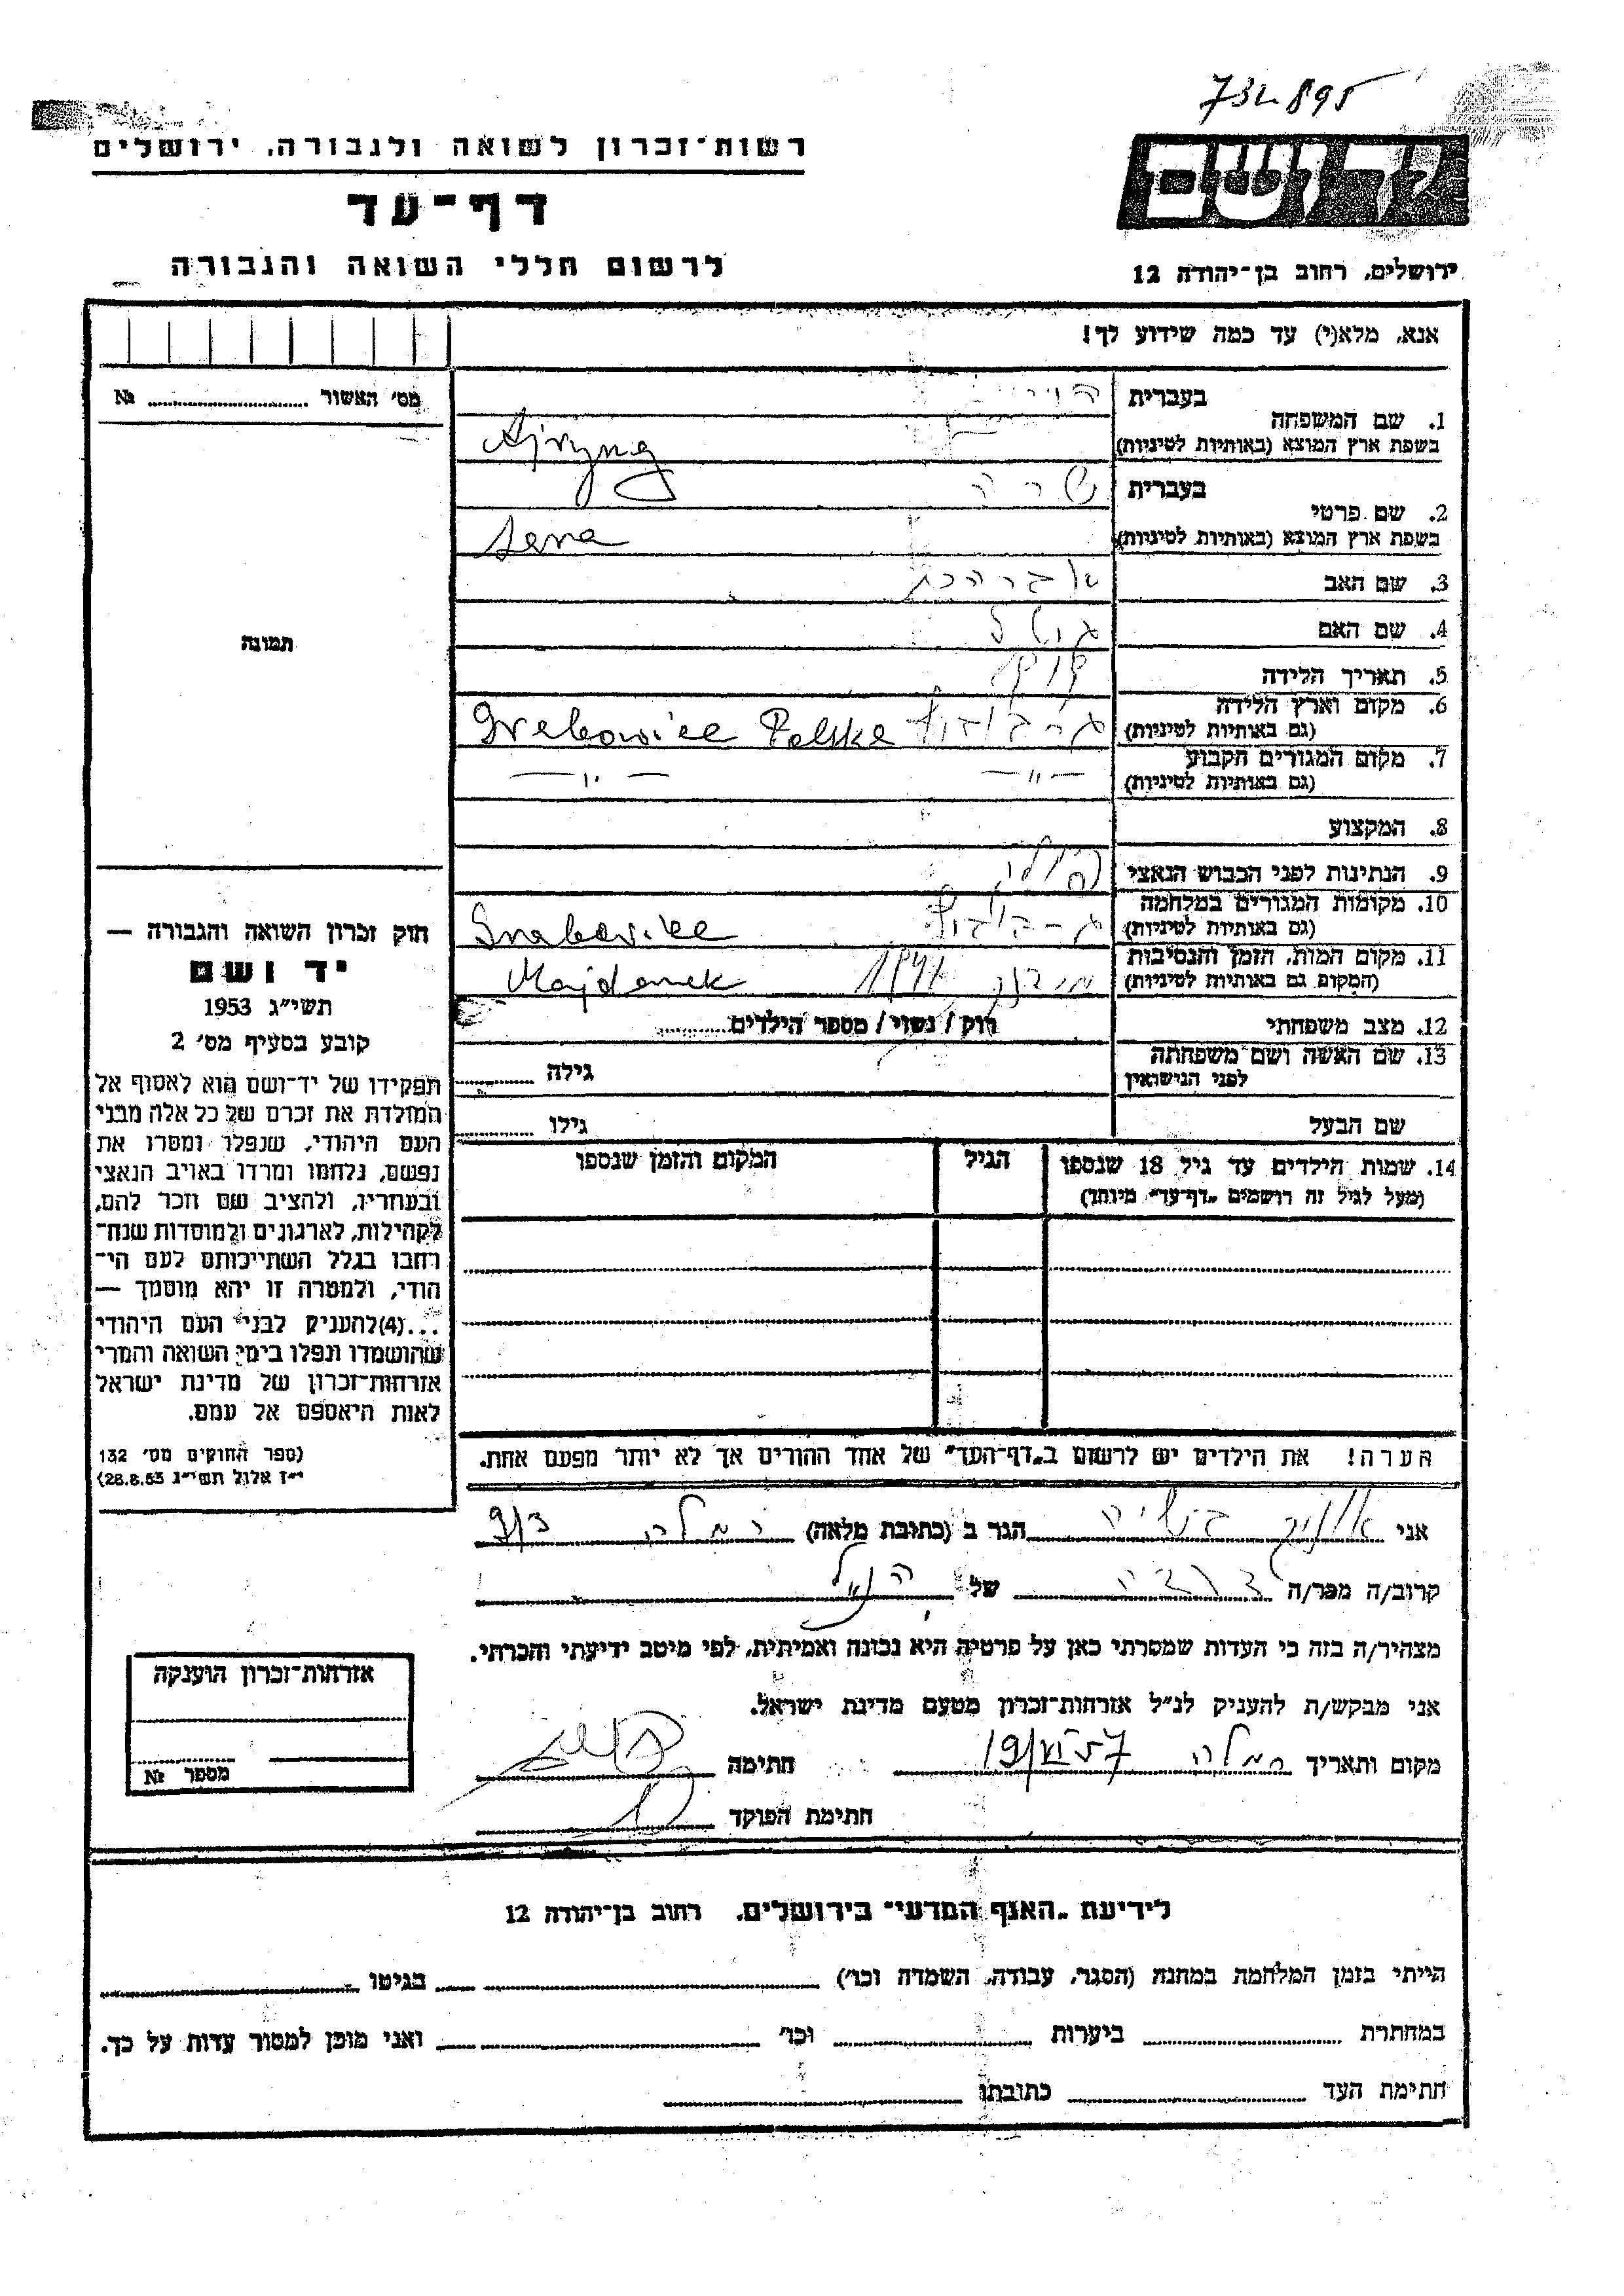 732895
רשות־זכרון לשואה ולגבורה, ירושלים
דף־עד
לרשום חללי השואה והגבורה
ירושלים, רחוב בן־יהודה 12
אנא, מלא(י) עד כמה שידוע לך!
מס׳ האשור № 
תמונה
בעברית
1. שם המשפחה
בשפת ארץ המוצא (באותיות לטיניות)
בעברית שרה
2. שם פרטי
בשפת ארץ המוצא (באותיות לטיניות) Sara
3. שם האב
4. שם האם
5. תאריך הלידה
6. מקום וארץ הלידה
(גם באותיות לטיניות) Grabowiec Polska
7. מקום המגורים הקבוע
(גם באותיות לטיניות) —״— —״—
8. המקצוע
9. הנתינות לפני הכבוש הנאצי
10. מקומות המגורים במלחמה
(גם באותיות לטיניות) Grabowiec
11. מקום המות, הזמן והנסיבות
(המקום גם באותיות לטיניות) Majdanek
12. מצב משפחתי רווק / נשוי / מספר הילדים
13. שם האשה ושם משפחתה
לפני הנישואין גילה
שם הבעל גילו
14. שמות הילדים עד גיל 18 שנספו
(מעל לגיל זה רושמים „דף־עד״ מיוחד)
הגיל
המקום והזמן שנספו
הערה! את הילדים יש לרשום ב„דף־העד״ של אחד ההורים אך לא יותר מפעם אחת.
חוק זכרון השואה והגבורה —
יד ושם
תשי״ג 1953
קובע בסעיף מס׳ 2
תפקידו של יד־ושם הוא לאסוף אל
המולדת את זכרם של כל אלה מבני
העם היהודי, שנפלו ומסרו את
נפשם, נלחמו ומרדו באויב הנאצי
ובעוזריו, ולהציב שם וזכר להם,
לקהילות, לארגונים ולמוסדות שנח־
רחבו בגלל השתייכותם לעם הי־
הודי, ולמטרה זו יהא מוסמך —
...(4)להעניק לבני העם היהודי
שהושמדו ונפלו בימי השואה והמרי
אזרחות־זכרון של מדינת ישראל
לאות היאספם אל עמם.
(ספר החוקים מס׳ 132
י״ז אלול תשי״ג 28.8.53)
אני הגר ב (כתובת מלאה) רמלה
קרוב/ה מכר/ה של הנ״ל
מצהיר/ה בזה כי העדות שמסרתי כאן על פרטיה היא נכונה ואמיתית, לפי מיטב ידיעתי והכרתי.
אני מבקש/ת להעניק לנ״ל אזרחות־זכרון מטעם מדינת ישראל.
מקום ותאריך רמלה 19/VI 57 חתימה
חתימת הפוקד
אזרחות־זכרון הוענקה
מספר №
לידיעת „האגף המדעי״ בירושלים, רחוב בן־יהודה 12
הייתי בזמן המלחמה במחנה (הסגר, עבודה, השמדה וכו׳) בגיטו
במחתרת ביערות וכו׳ ואני מוכן למסור עדות על כך.
חתימת העד כתובתו